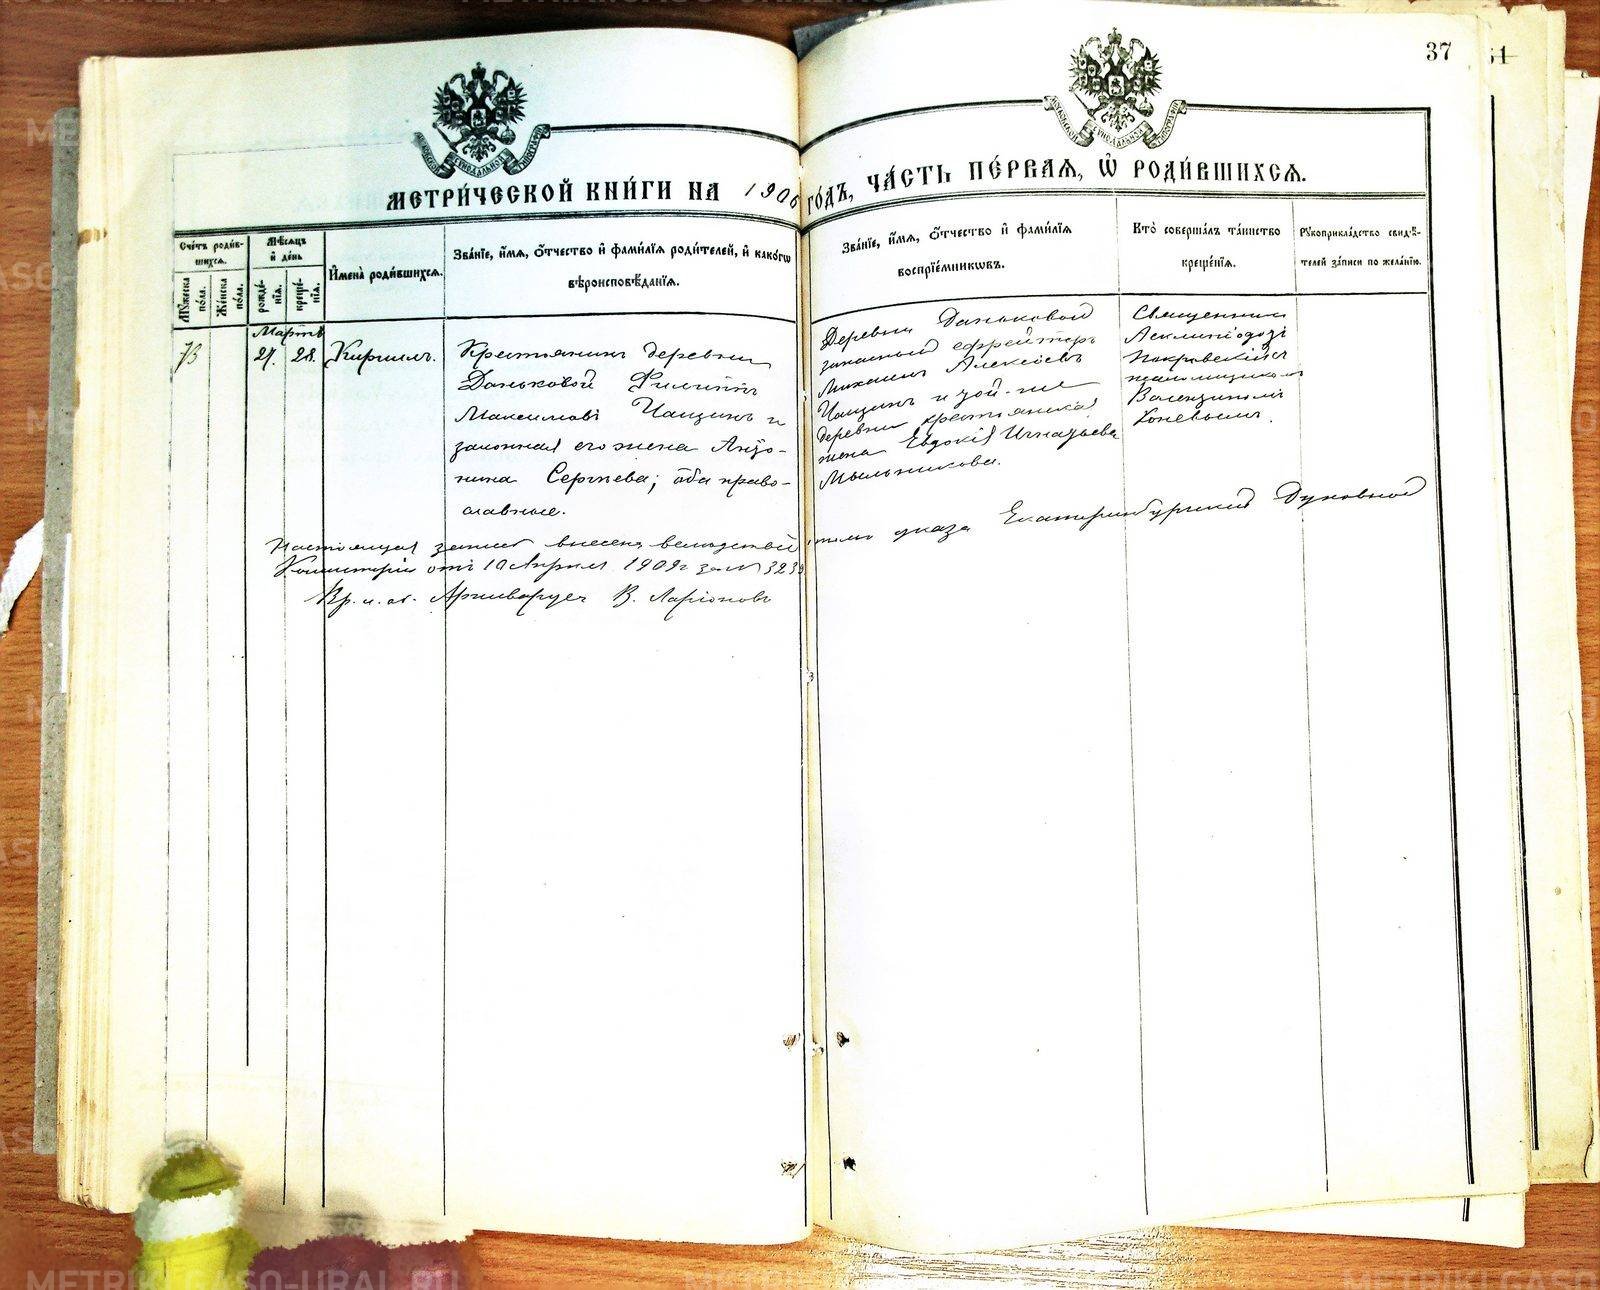 37
МЕТРИ́ЧЕСКОЙ КНИ́ГИ НА 1906 ГО́ДЪ, ЧА́СТЬ ПЕ́РВАЯ, Ѿ РОДИ́ВШИХСЯ.
Сче́тъ роди́в-
шихся.
Му́жеска по́ла.
Же́нска по́ла.
Мѣ́сяцъ и҆ де́нь
рожде́нія.
креще́нія.
И҆мена̀ роди́вшихся.
Зва́нїе, и҆́мя, ѻ҆́тчество и҆ фами́лїя роди́телей, и҆ како́гѡ
вѣроисповѣ́данїя.
Зва́нїе, и҆́мя, ѻ҆́тчество и҆ фами́лїя
воспрїе́мниковъ.
Кто̀ соверша́лъ та́инство
креще́нїя.
Рꙋкоприкла́дство свидѣ́-
телей за́писи по жела́нїю.
Мартъ
73
27. 28. Кириллъ.
Крестьянинъ деревни
Даньковой Филиппъ
Максимовъ Чащинъ и
законная его жена Анто-
нина Сергѣева; оба право-
славные.
Деревни Даньковой
запасный ефрейторъ
Михаилъ Алексѣевъ
Чащинъ и той-же
деревни крестьянская
жена Евдокія Игнатьева
Мыльникова.
Священникъ
Асклипіодотъ
Покровскій съ
псаломщикомъ
Валентиномъ
Коневымъ.
Настоящая запись внесена вслѣдствіе указа Екатеринбургской Духовной
Консисторіи отъ 10 Апрѣля 1909 г за № 3239
Вр. и. об. Архиваріуса В. Ларіоновъ